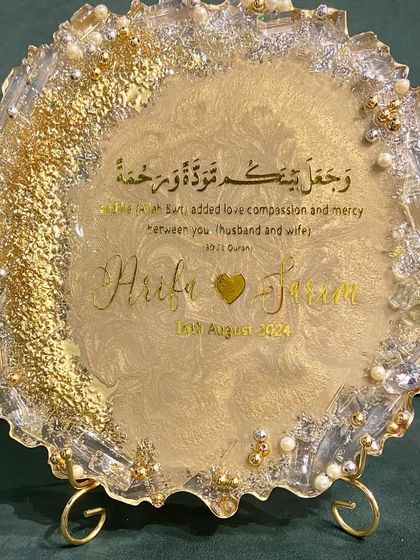 وَجَعَلَ بَيْنَكُم مَّوَدَّةً وَرَحْمَةً
and He (Allah Swt) added love compassion and mercy
between you (husband and wife)
(30:21 Quran)
Arifa Sarim
16th August 2024